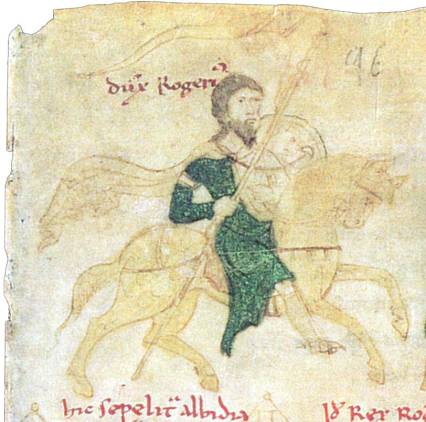 dux Rogeri᷒
96
hic sepelit᷑ albidia
Rex Ro